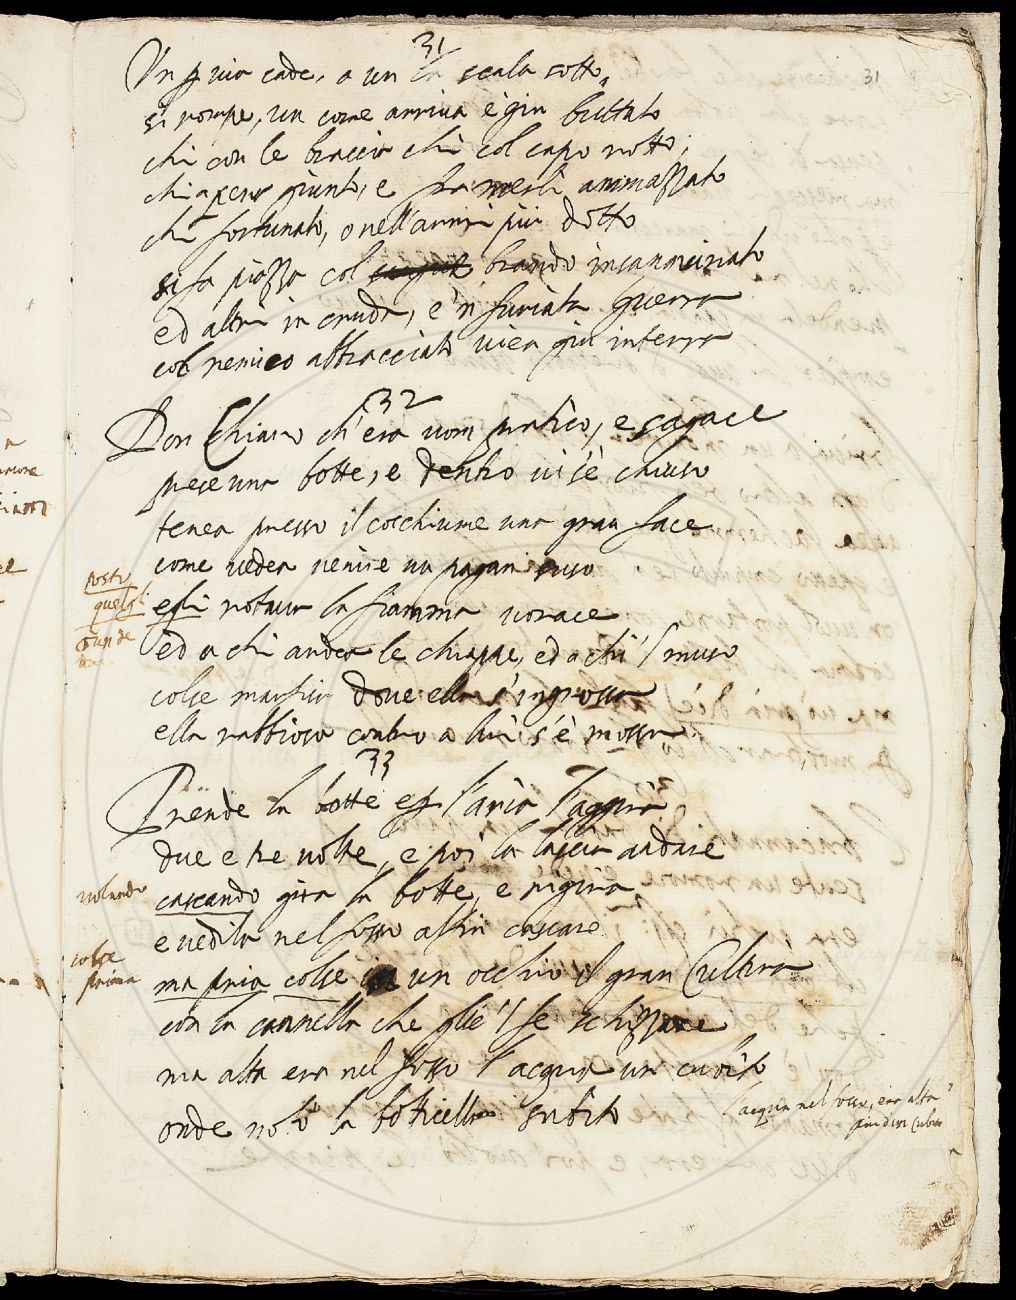 31
31
Un pria cade, a un la scala sotto
si rompe, un come arriva è giu buttato
chi con le braccia chi col capo rotto,
chi apena giunto, e fra merli ammazzato
chi fortunato, o nell'armi più dotto
si fa piazza col brando insanguinato
ed altri in cruda, e infuriata guerra
col nemico abbracciato vien giu in terra
32
Don Chiaro ch'era uom pratico, e sagace
prese una botte, e dentro vi s'è chiuso
tenea presso il cocchiume una gran face
come vedea venire un pagan suso
egli votava la fiamma vorace
ed a chi ardea le chiappe, ed a chi 'l muso
colse Marfisa dove ella s'ingrossa
ella rabbiosa contro a lui s'è mossa
posto
quegli
33
Prende la botte e per l'aria l'aggira
due e tre volte, e poi la lascia andare
cascando gira la botte, e rigira
volando
e vedila nel fosso alfin cascare
ma pria colse in un occhio il gran Cultirà
colse
prima
con la cannella che gliè 'l fe schizzare
ma alta era nel fosso l'acqua un cubito
onde notò la botticella subito
l'acqua nel fosso, era alta
più di un cubito